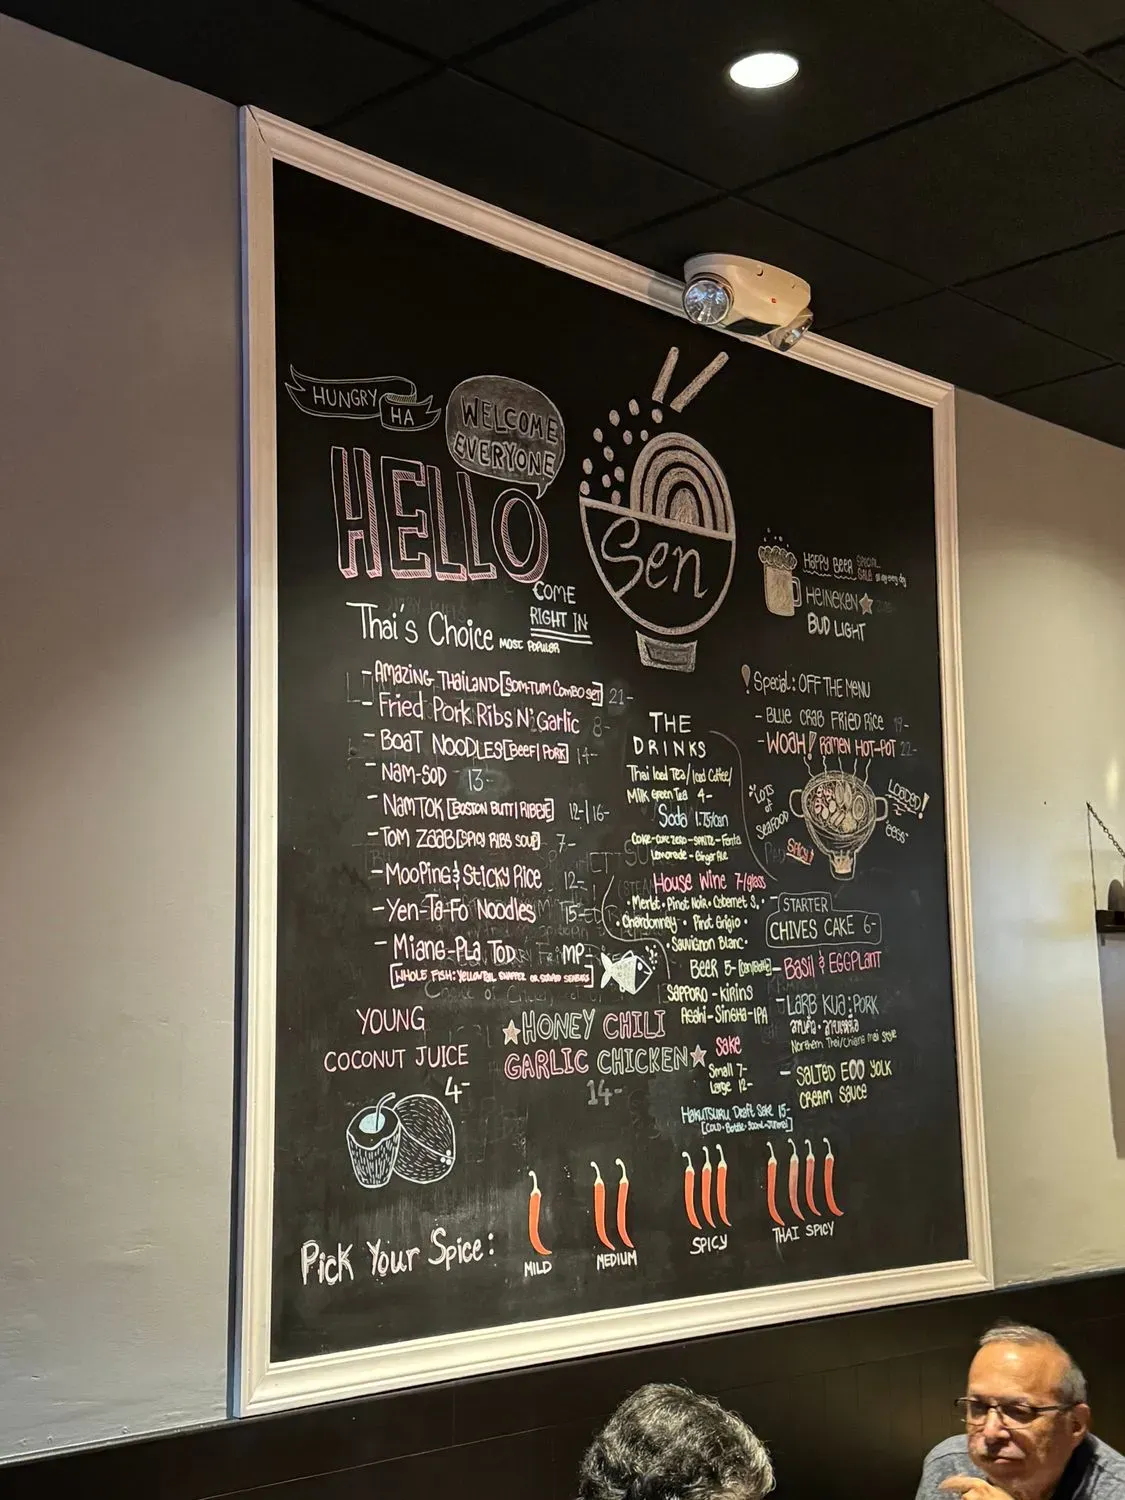 HUNGRY
HA
WELCOME
EVERYONE
HELLO
COME
RIGHT IN
Sen
Thai's Choice MOST POPULAR
- AMAZING THAILAND [SOM-TUM COMBO SET] 21-
- Fried Pork Ribs N' Garlic 8-
- BOAT NOODLES [BEEF | PORK] 14-
- NAM-SOD 13-
- NAMTOK [BOSTON BUTT | RIBEYE] 12- | 16-
- TOM ZAAB [SPICY RIBS SOUP] 7-
- MOOPING & STICKY RICE 12-
- Yen-Ta-Fo Noodles 15-
- MIANG-PLA TOD MP-
[WHOLE FISH: YELLOWTAIL SNAPPER OR
YOUNG
COCONUT JUICE
4-
☆HONEY CHILI
GARLIC CHICKEN☆
14-
THE
DRINKS
Thai Iced Tea/Iced Coffee/
Milk Green Tea 4-
Soda 1.75/can
COKE-COKE ZERO-SPRITE-Fanta
Lemonade-Ginger Ale
House Wine 7/glass
• Merlot • Pinot Noir • Cabernet S. •
Chardonnay • Pinot Grigio •
• Sauvignon Blanc •
BEER 5-
SAPPORO-KIRINS
Asahi-Singha-IPA
SAKE
Small 7-
Large 12-
HAKUTSURU Draft Sake 15-
HAPPY BEER SPECIAL
HEINEKEN☆
BUD LIGHT
Special: OFF THE MENU
- BLUE CRAB FRIED RICE 19-
- WOAH! RAMEN HOT-POT 22-
"LOTS
OF
SEAFOOD
LOADED!
SPICY!
STARTER
CHIVES CAKE 6-
- BASIL & EGGPLANT
- LARB KUA: PORK
Northern Thai/Chiang Mai Style
- SALTED EGG YOLK
CREAM SAUCE
Pick Your Spice:
MILD
MEDIUM
SPICY
THAI SPICY